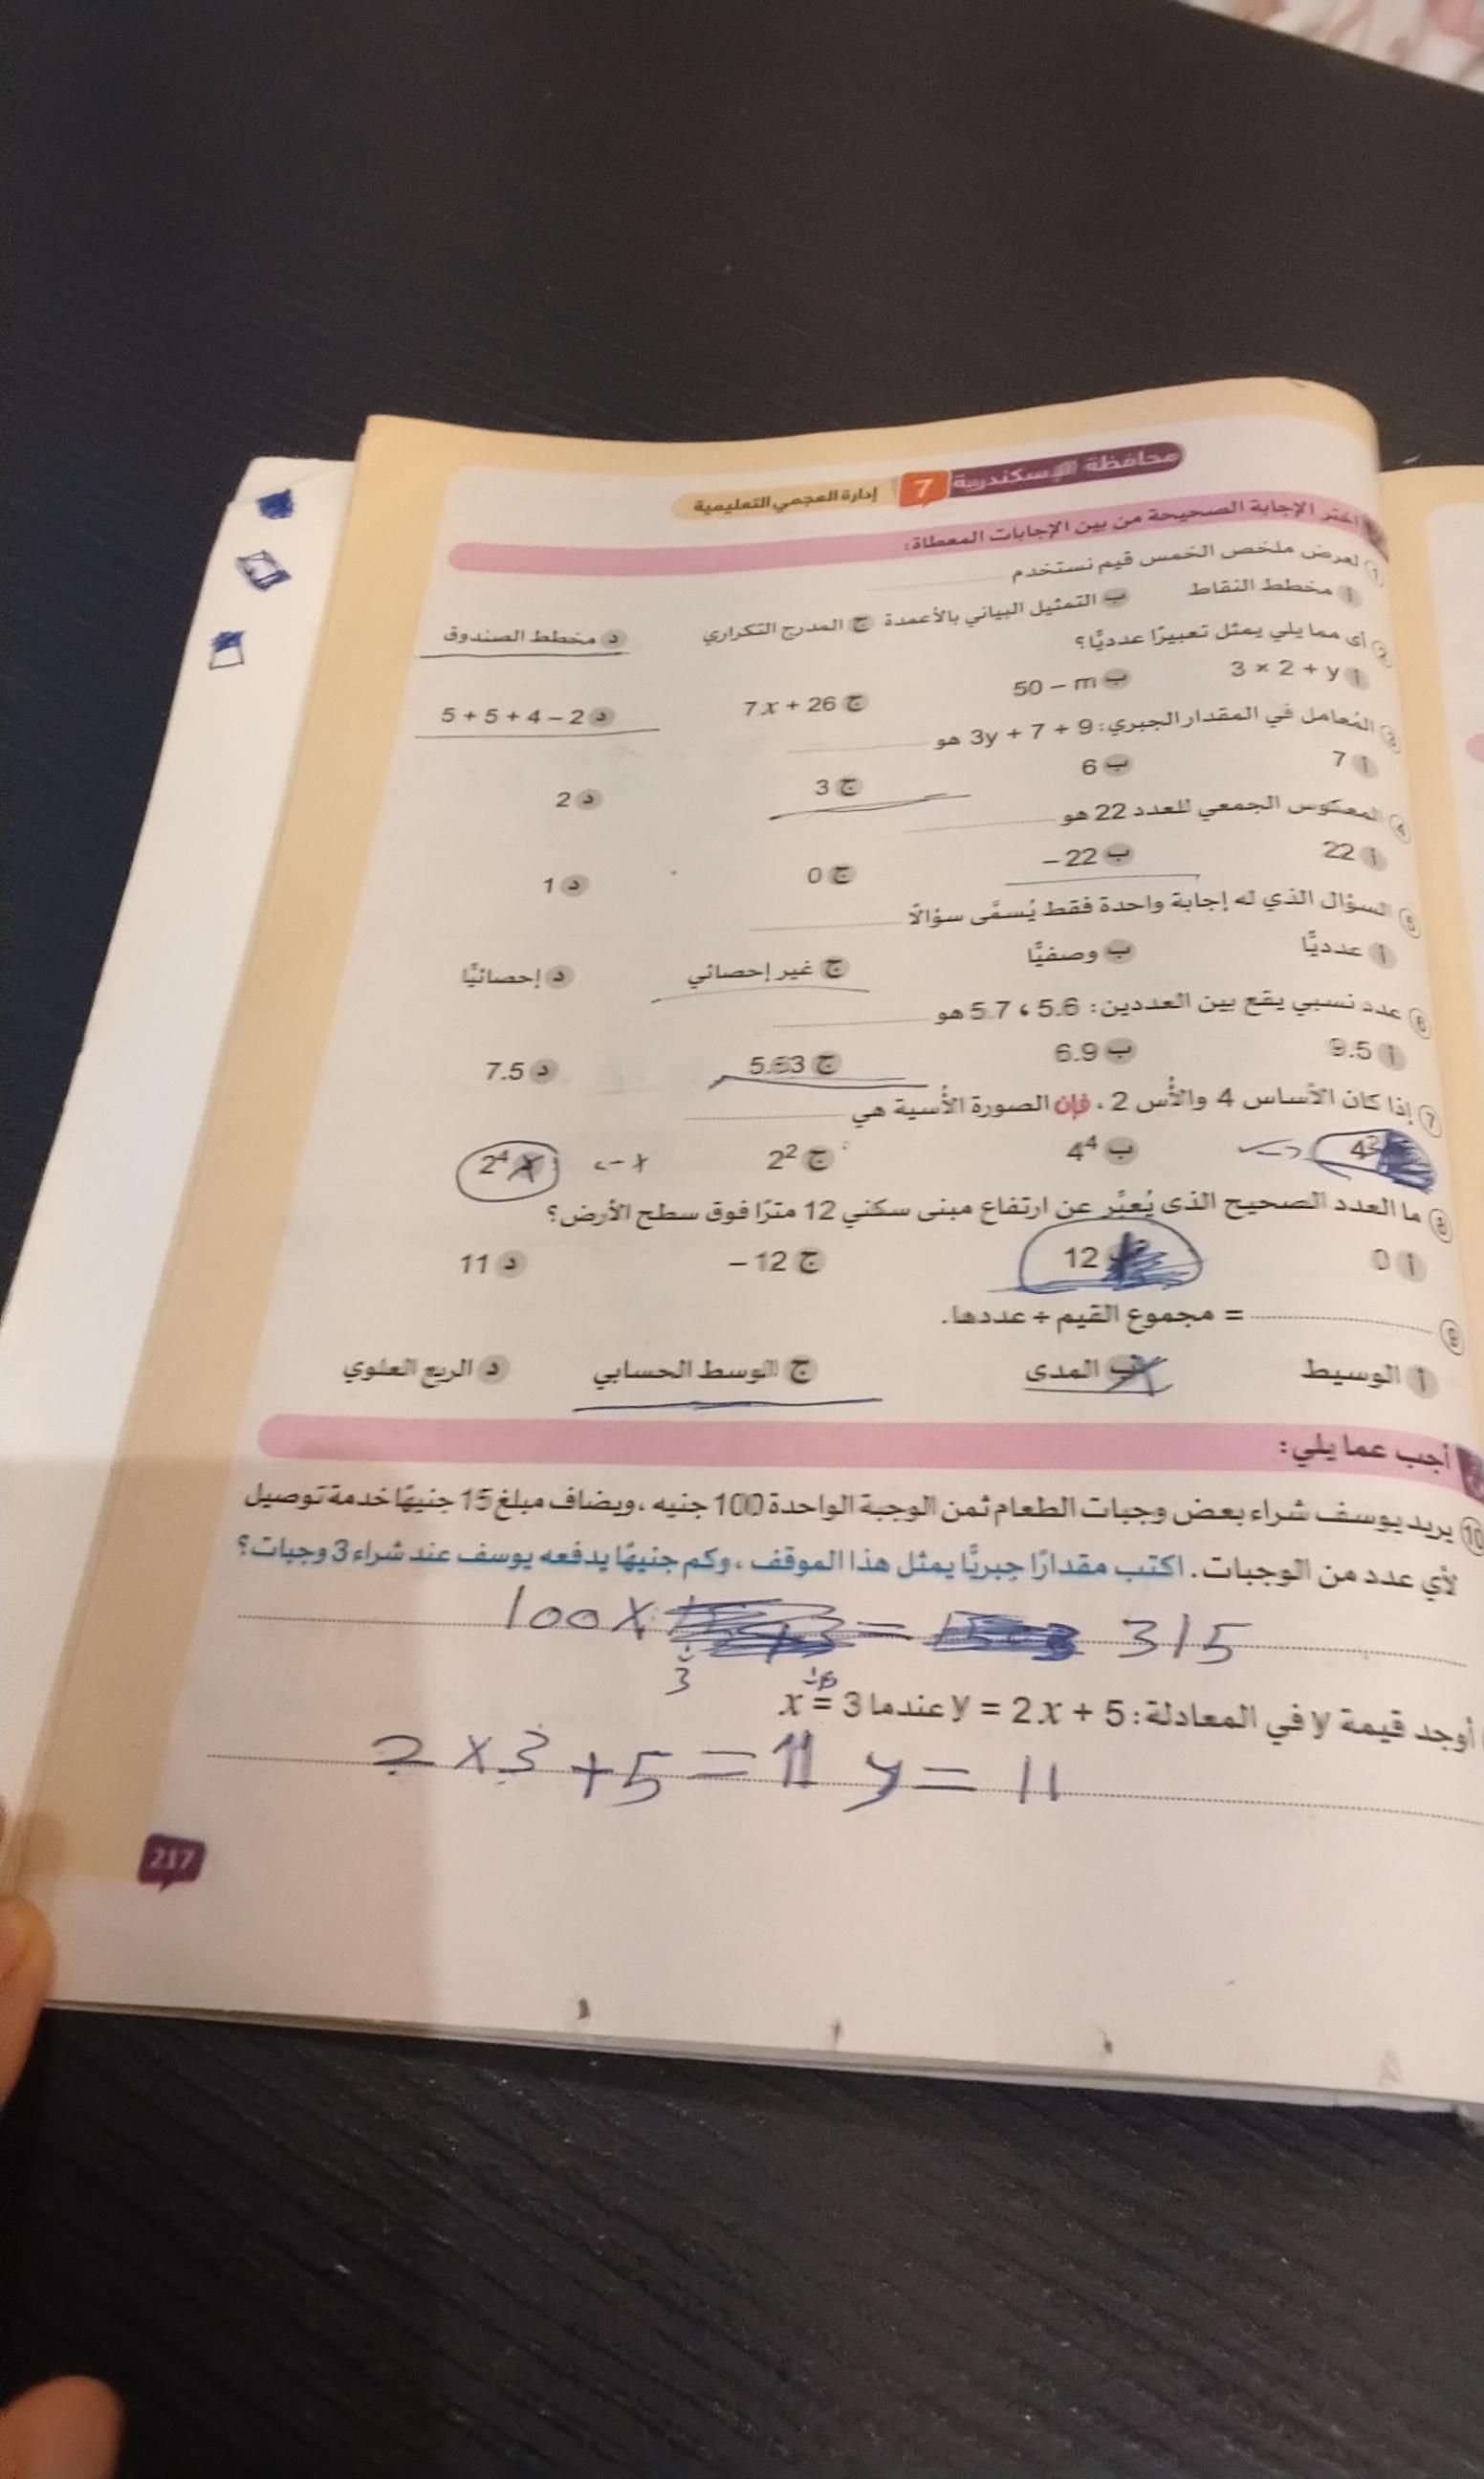 محافظة الإسكندرية 7 إدارة العجمي التعليمية
اختر الإجابة الصحيحة من بين الإجابات المعطاة:
1 لعرض ملخص الخمس قيم نستخدم
أ مخطط النقاط ب التمثيل البياني بالأعمدة ج المدرج التكراري د مخطط الصندوق
2 أى مما يلي يمثل تعبيرًا عدديًّا؟
أ 3 × 2 + y ب 50 – m ج 7x + 26 د 5 + 5 + 4 – 2
3 المُعامل في المقدار الجبري: 3y + 7 + 9 هو
أ 7 ب 6 ج 3 د 2
4 المعكوس الجمعي للعدد 22 هو
أ 22 ب – 22 ج 0 د 1
5 السؤال الذي له إجابة واحدة فقط يُسمَّى سؤالًا
أ عدديًّا ب وصفيًّا ج غير إحصائي د إحصائيًّا
6 عدد نسبي يقع بين العددين: 5.6 ، 5.7 هو
أ 9.5 ب 6.9 ج 5.63 د 7.5
7 إذا كان الأساس 4 والأُس 2 ، فإن الصورة الأُسية هي
4² ب 4⁴ ج 2² 2⁴
8 ما العدد الصحيح الذى يُعبَّر عن ارتفاع مبنى سكني 12 مترًا فوق سطح الأرض؟
أ 0 12 ج – 12 د 11
9 = مجموع القيم ÷ عددها.
أ الوسيط ب المدى ج الوسط الحسابي د الربع العلوي
أجب عما يلي:
10 يريد يوسف شراء بعض وجبات الطعام ثمن الوجبة الواحدة 100 جنيه ، ويضاف مبلغ 15 جنيهًا خدمة توصيل
لأي عدد من الوجبات. اكتب مقدارًا جبريًّا يمثل هذا الموقف ، وكم جنيهًا يدفعه يوسف عند شراء 3 وجبات؟
100 x = 315
3
أوجد قيمة y في المعادلة: y = 2x + 5 عندما x = 3.
2 x 3 + 5 = 11 y = 11
217